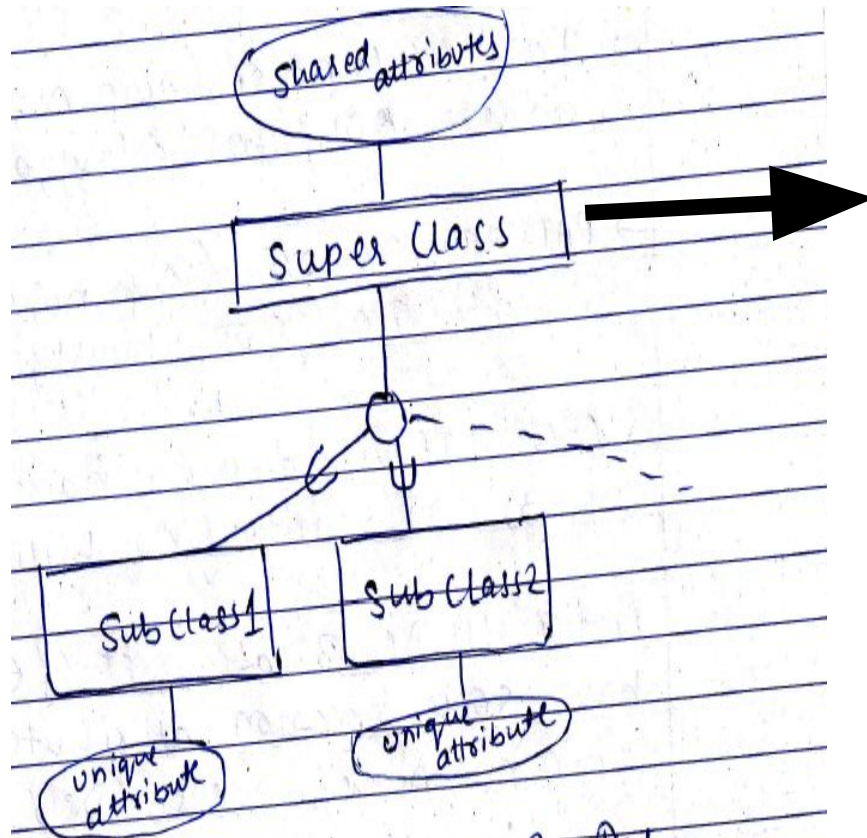 Shared
attributes
Super Class
SubClass1
SubClass2
unique
attribute
unique
attribute